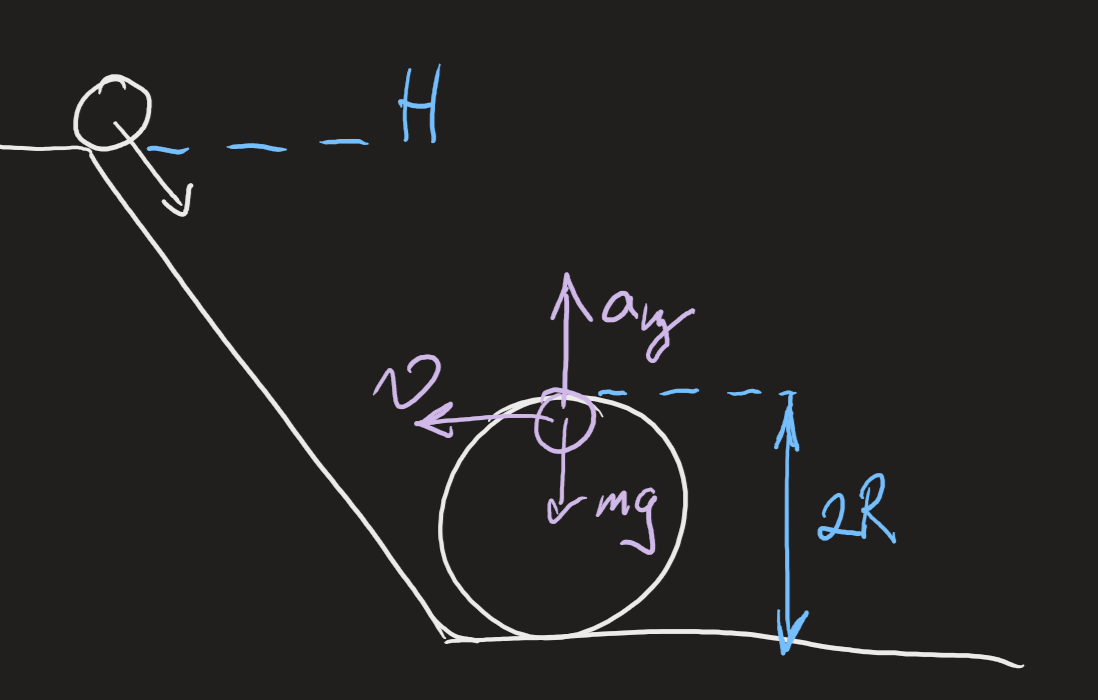 H
a_цб
v
mg
2R